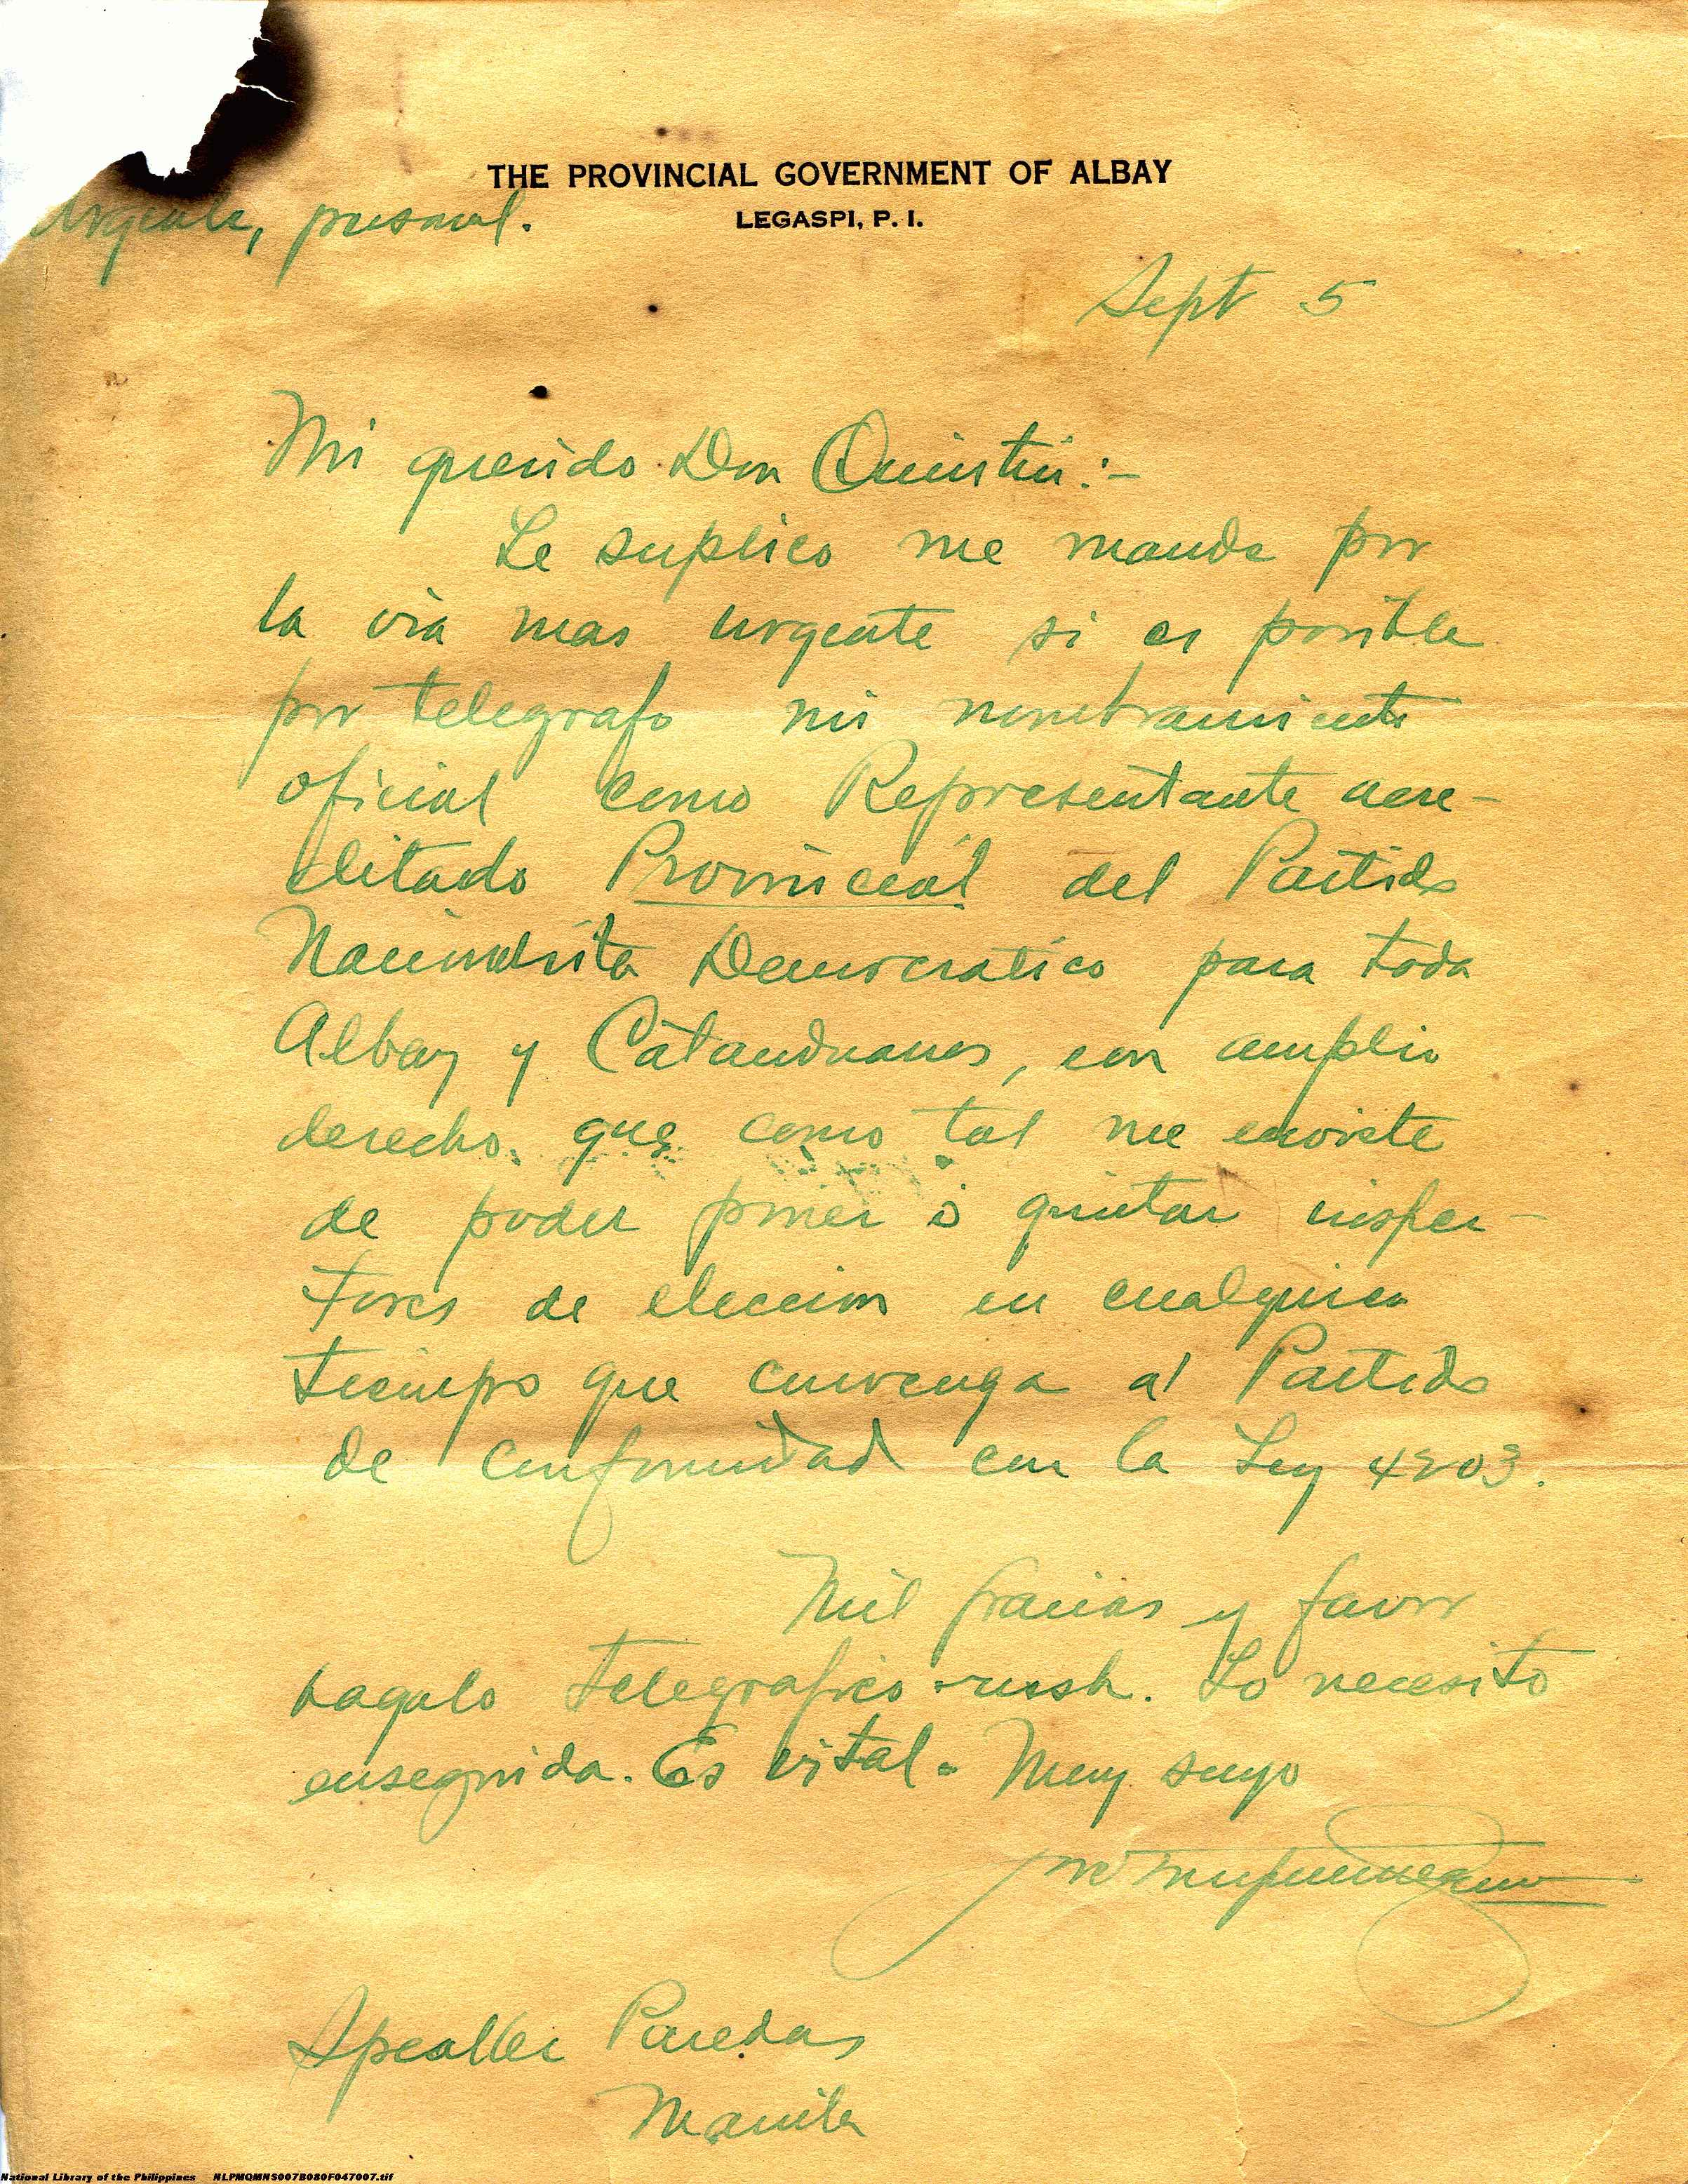 THE PROVINCIAL GOVERNMENT OF ALBAY
LEGASPI, P. I.
Urgente, personal.
Sept 5
Mi querido Don Quintin:-
Le suplico me mande por
la via mas urgente si es posible
por telegrafo mi nombramiento
oficial como Representante acre-
ditado Provincial del Partido
Nacionalista Democratico para toda
Albay y Catanduanes, con amplio
derecho que como tal me enviste
de poder poner ó quitar inspec-
tores de eleccion en cualquier
tiempo que convenga al Partido
de conformidad con la Ley 4203.
Mil gracias y favor
hagalo telegrafico-rush. Lo necesito
enseguida. Es vital. Muy suyo
José
Speaker Paredes
Manila
National Library of the Philippines NLPMQMNS007B080F047007.tif